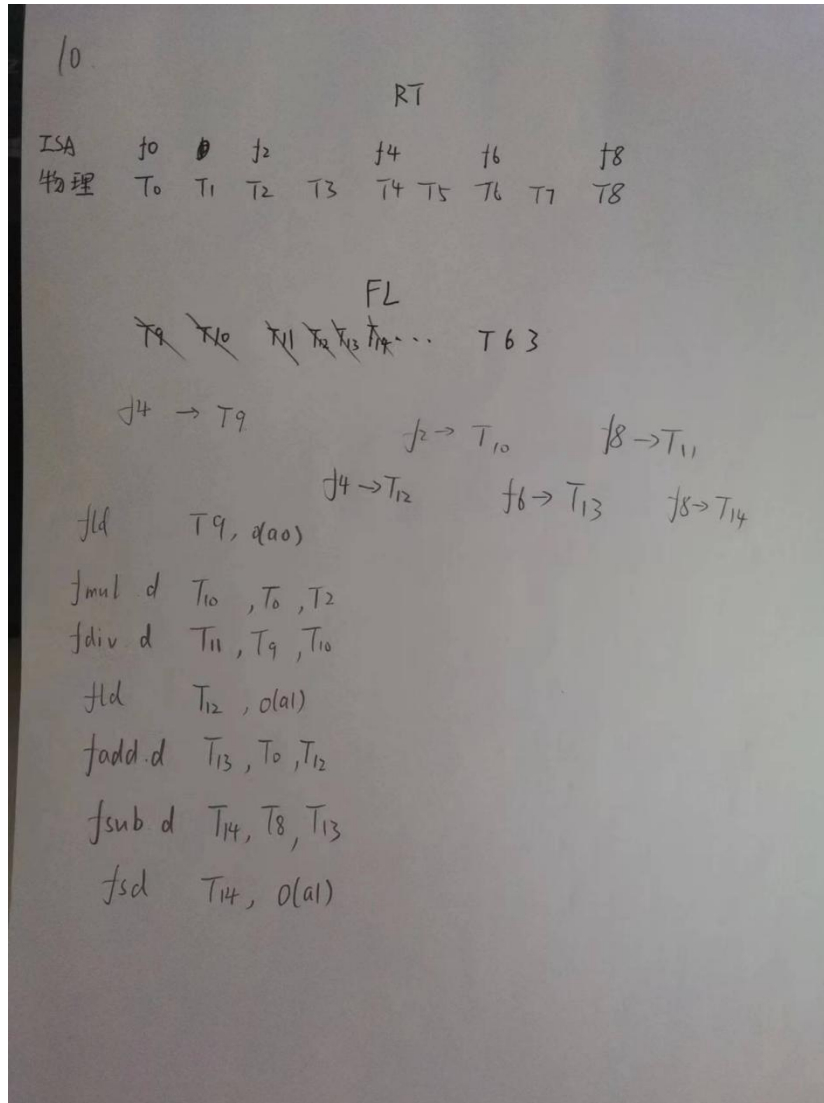 10.
RT
ISA f0 f2 f4 f6 f8
物理 T0 T1 T2 T3 T4 T5 T6 T7 T8
FL
T9 T10 T11 T12 T13 T14 ... T63
f4 → T9 f2 → T10 f8 → T11
f4 → T12 f6 → T13 f8 → T14
fld T9, 0(a0)
fmul d T10, T0, T2
fdiv d T11, T9, T10
fld T12, 0(a1)
fadd.d T13, T0, T12
fsub d T14, T8, T13
fsd T14, 0(a1)